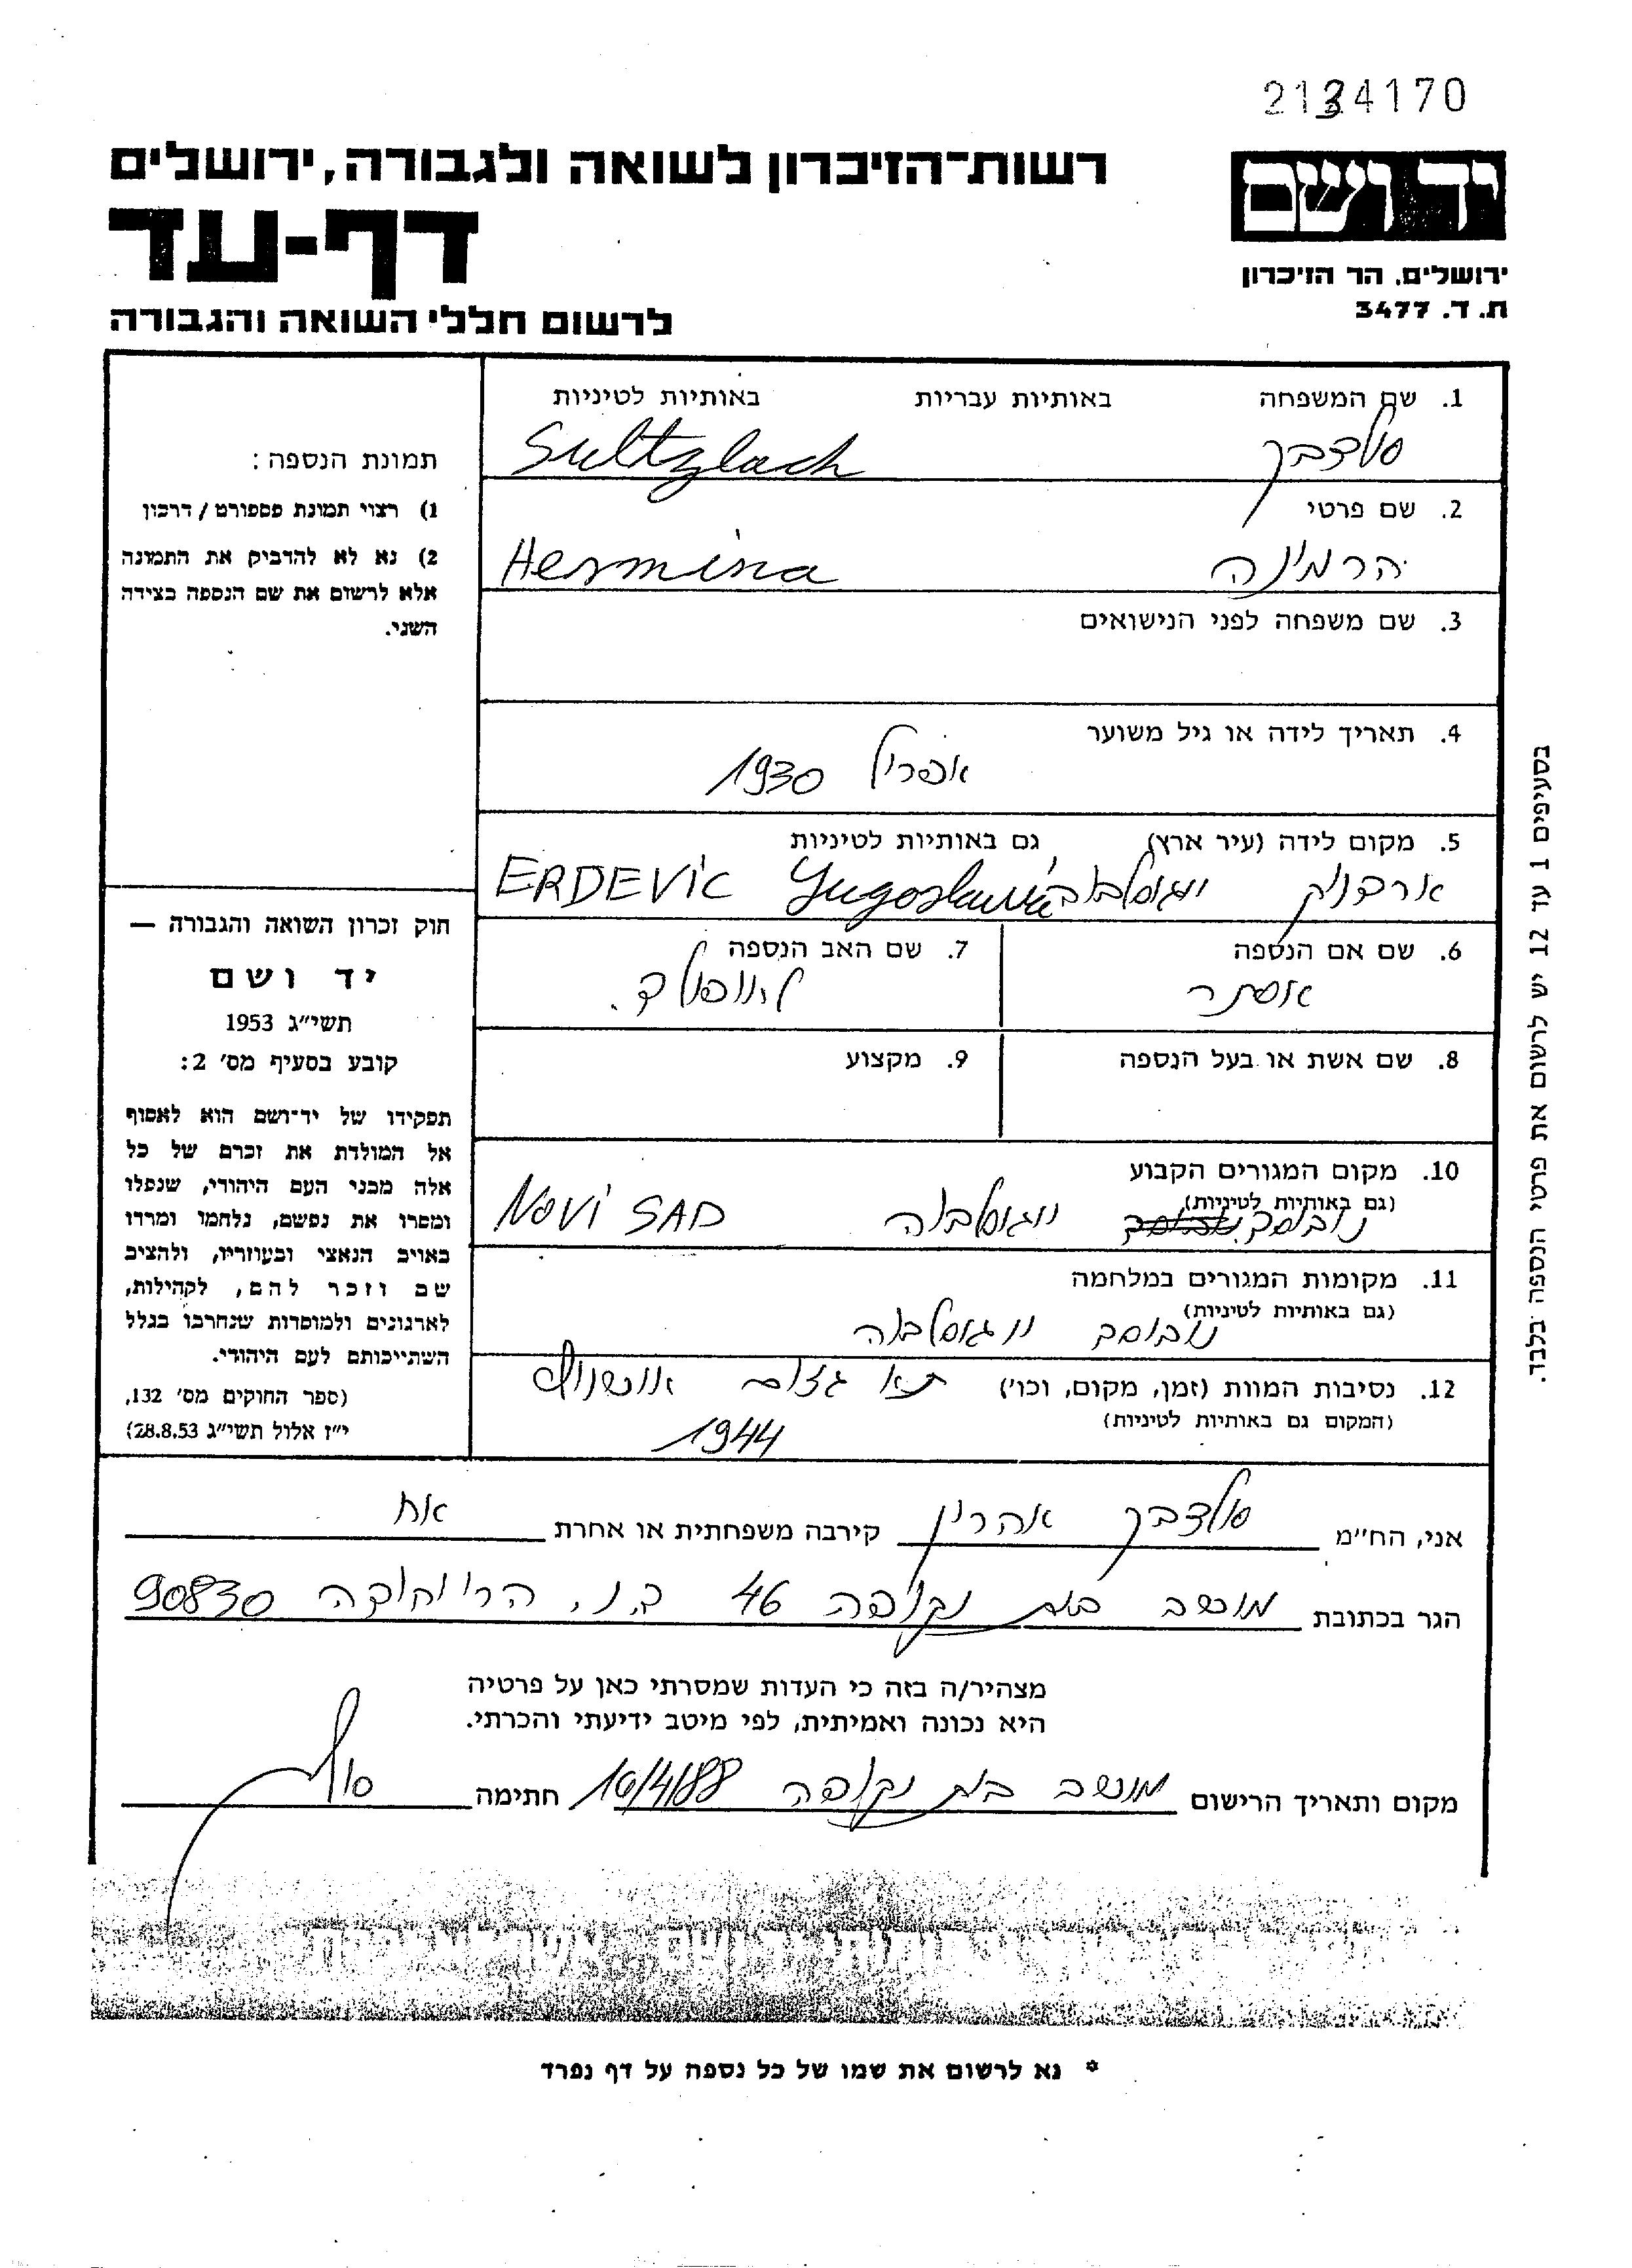 2134170
רשות־הזיכרון לשואה ולגבורה, ירושלים
יד ושם
דף-עד
ירושלים, הר הזיכרון
ת. ד. 3477
לרשום חללי השואה והגבורה
1. שם המשפחה באותיות עבריות באותיות לטיניות
סולצבך Sultzbach
2. שם פרטי
הרמינה Hermina
3. שם משפחה לפני הנישואים
4. תאריך לידה או גיל משוער
אפריל 1930
5. מקום לידה (עיר ארץ) גם באותיות לטיניות
ארדויק יוגוסלביה Yugoslavia ERDEVIC
6. שם אם הנספה 7. שם האב הנספה
אסתר ליאופולד.
8. שם אשת או בעל הנספה 9. מקצוע
10. מקום המגורים הקבוע
(גם באותיות לטיניות)
נובוסד יוגוסלביה NOVI SAD
11. מקומות המגורים במלחמה
(גם באותיות לטיניות)
נובוסד יוגוסלביה
12. נסיבות המוות (זמן, מקום, וכו׳) תא גזים אושוויץ
(המקום גם באותיות לטיניות)
1944
תמונת הנספה:
1) רצוי תמונת פספורט / דרכון
2) נא לא להדביק את התמונה
אלא לרשום את שם הנספה בצידה
השני.
חוק זכרון השואה והגבורה —
יד ושם
תשי״ג 1953
קובע בסעיף מס׳ 2:
תפקידו של יד־ושם הוא לאסוף
אל המולדת את זכרם של כל
אלה מבני העם היהודי, שנפלו
ומסרו את נפשם, נלחמו ומרדו
באויב הנאצי ובעוזריו, ולהציב
שם וזכר להם, לקהילות,
לארגונים ולמוסדות שנחרבו בגלל
השתייכותם לעם היהודי.
(ספר החוקים מס׳ 132,
י״ז אלול תשי״ג 28.8.53)
בסעיפים 1 עד 12 יש לרשום את פרטי הנספה בלבד.
אני, הח״מ סולצבך אהרון קירבה משפחתית או אחרת אח
הגר בכתובת מושב בית נקופה 46 ד.נ. הרי יהודה 90830
מצהיר/ה בזה כי העדות שמסרתי כאן על פרטיה
היא נכונה ואמיתית, לפי מיטב ידיעתי והכרתי.
מקום ותאריך הרישום מושב בית נקופה 10/4/88 חתימה
* נא לרשום את שמו של כל נספה על דף נפרד